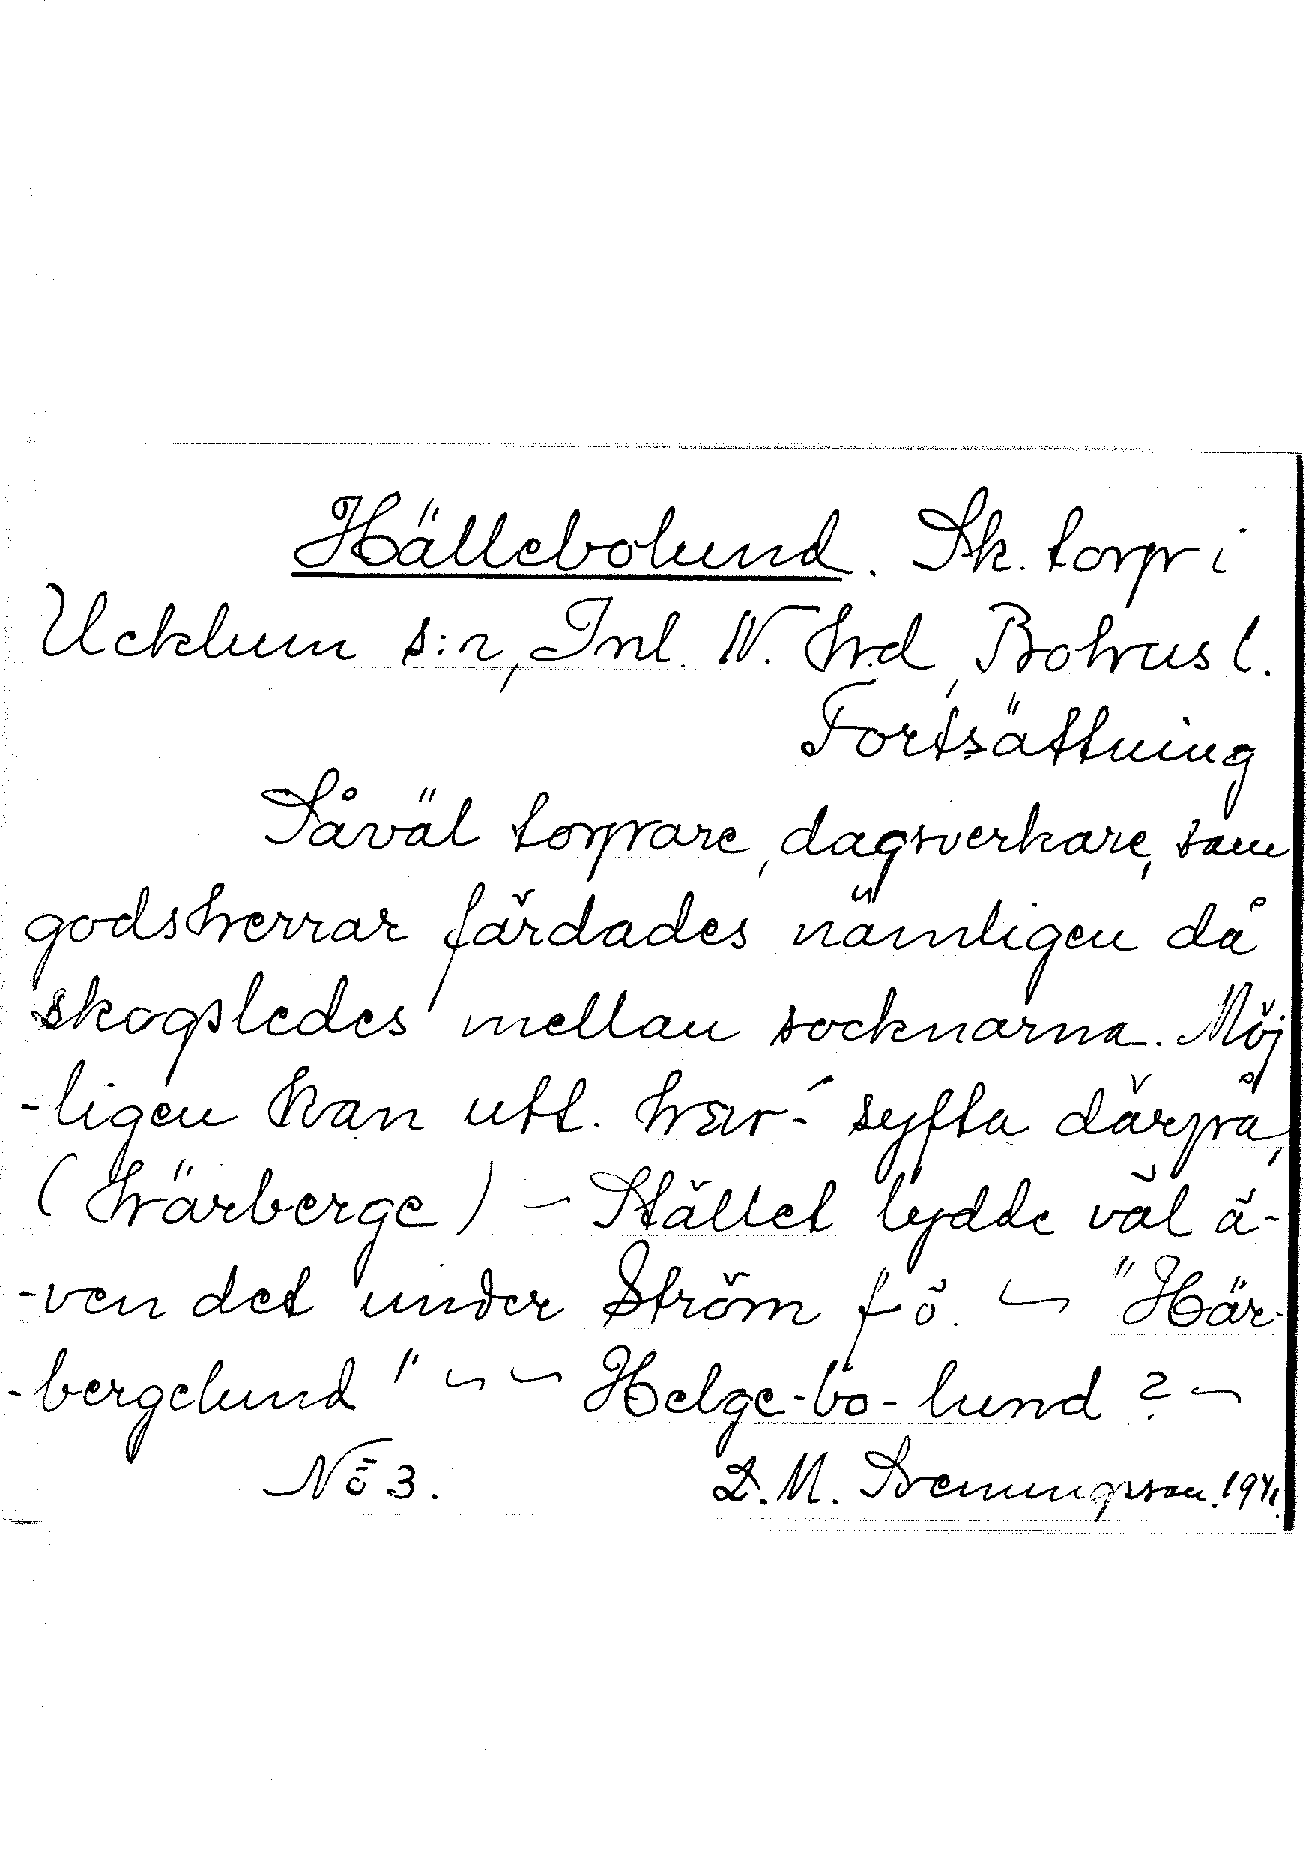 Hällebolund. Sk. torp i
Ucklum s:n, Inl. N. hrd, Bohusl.
Fortsättning
Såväl torpare, dagsverkare, som
godsherrar färdades nämligen då
skogsledes mellan socknarna. Möj
-ligen kan utt. hær-´ syfta därpå,
(härberge) - Stället lydde väl ä-
-ven det under Ström f ö. - "Här-
-bergelund" - - Helge-bo-lund? -
No 3. D. M. 1941.